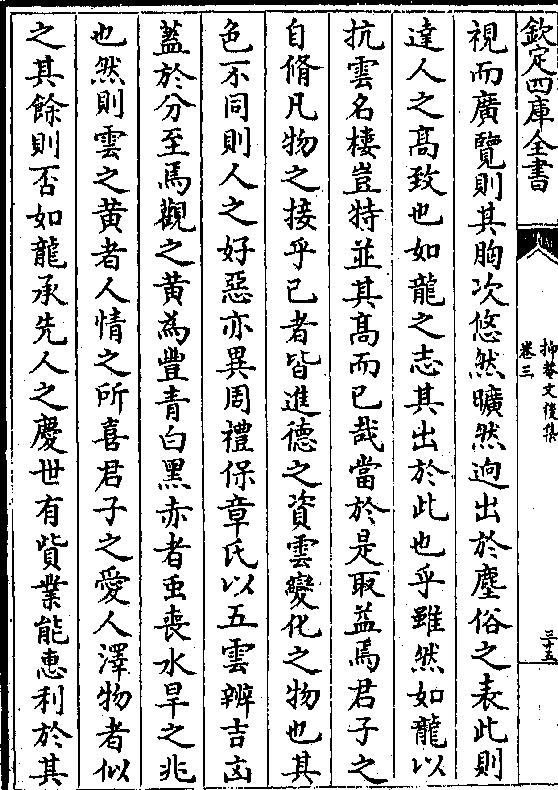 欽定四庫全書
抑菴文後集
卷三
三十五
視而廣覽則其胸次悠然曠然逈出於塵俗之表此則
達人之髙致也如龍之志其出於此也乎雖然如龍以
抗雲名棲豈特並其髙而已哉當於是取益焉君子之
自脩凡物之接乎己者皆進德之資雲變化之物也其
色不同則人之好惡亦異周禮保章氏以五雲辨吉凶
蓋於分至焉觀之黄為豐青白黑赤者䖝喪水旱之兆
也然則雲之黄者人情之所喜君子之愛人澤物者似
之其餘則否如龍承先人之慶世有貲業能惠利於其